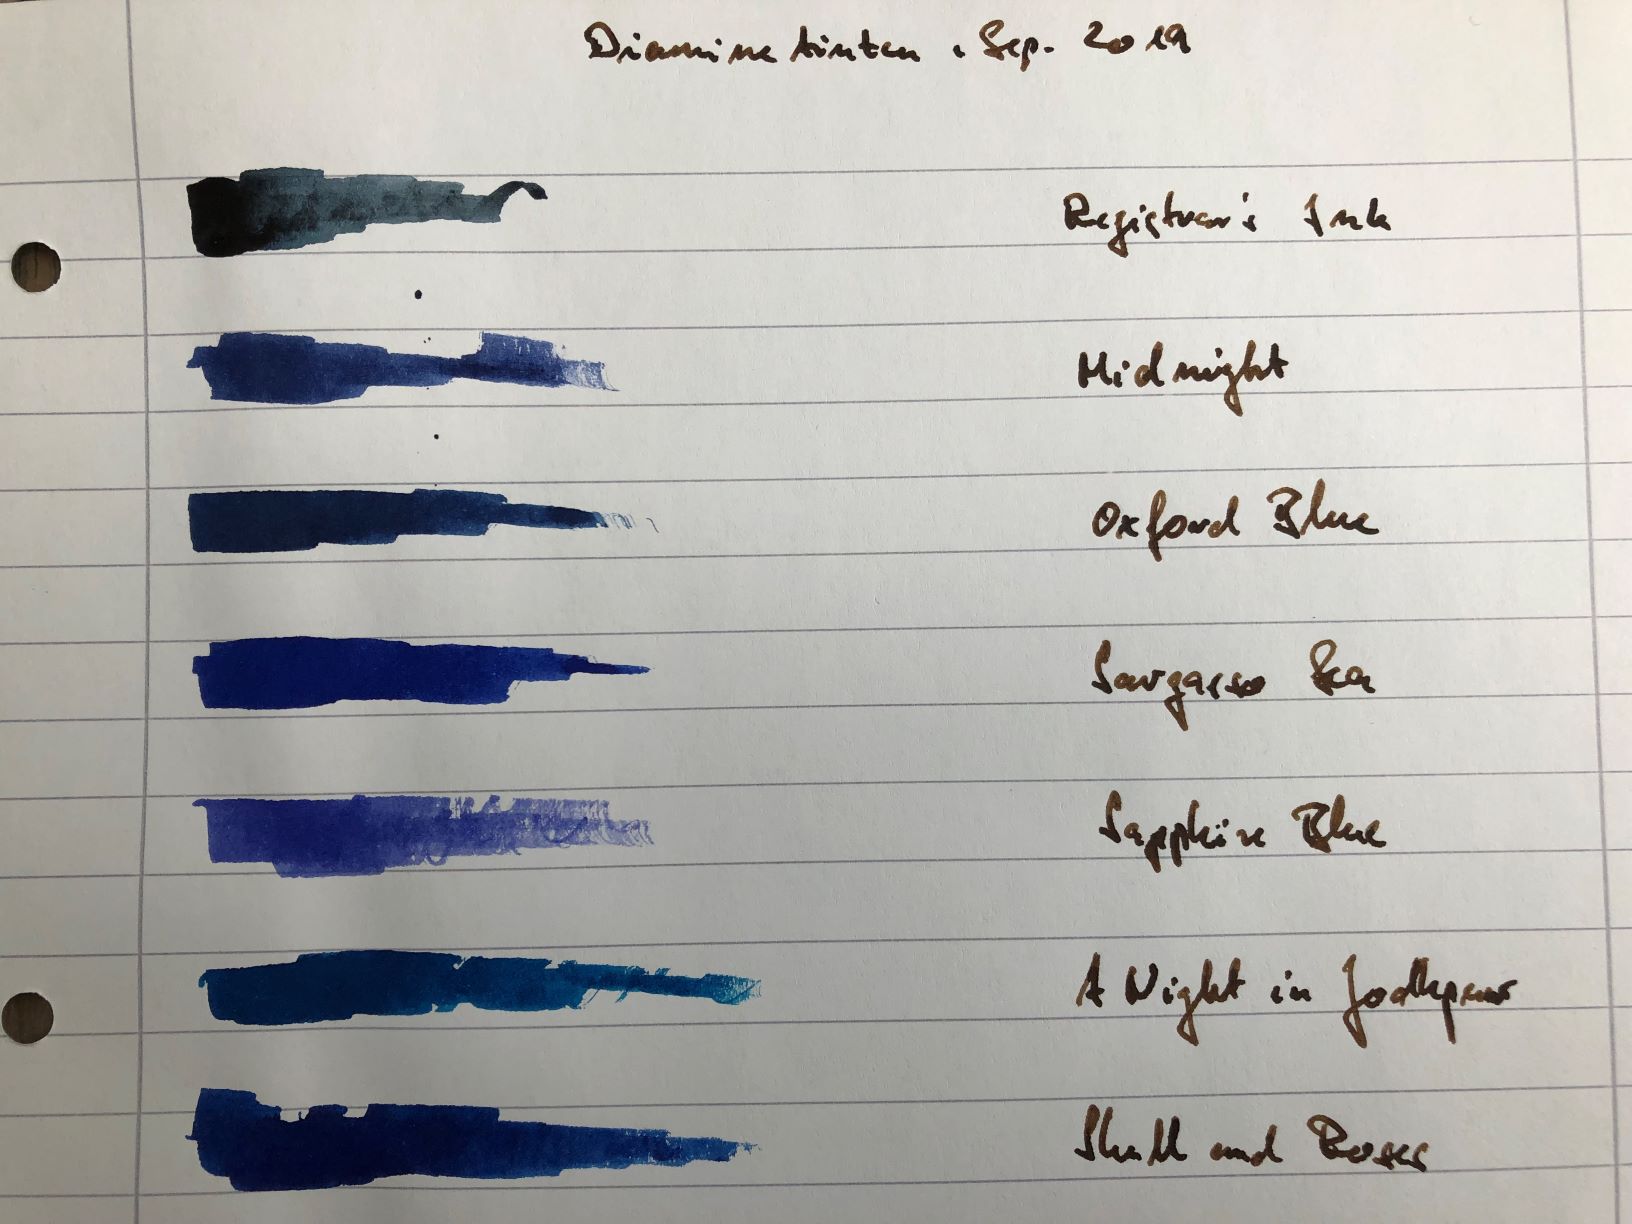 Diamine tinten, Sep. 2019
Registrar's Ink
Midnight
Oxford Blue
Sargasso Sea
Sapphire Blue
A Night in Jodhpur
Skull and Roses